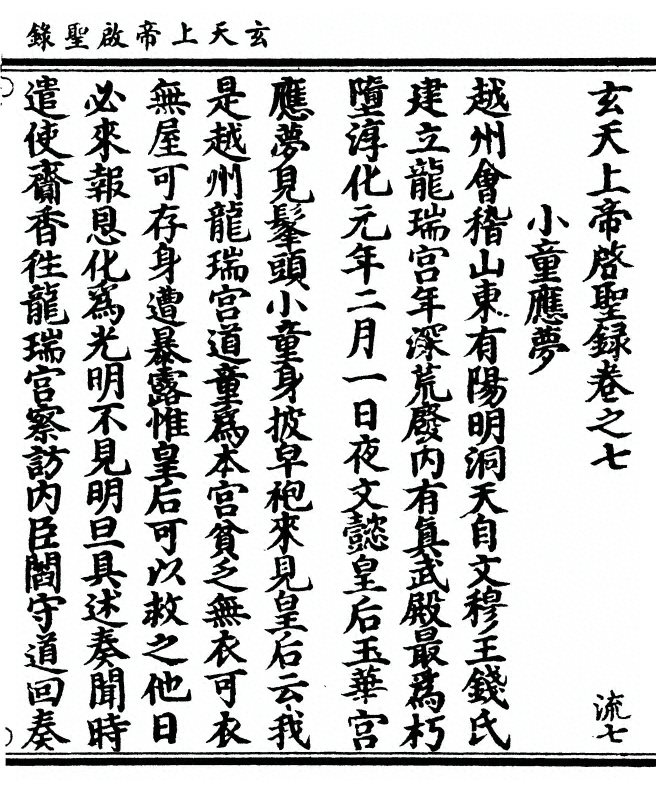 玄天上帝啟聖錄
玄天上帝啓聖録卷之七
流七
小童應夢
越州會稽山東有陽明洞天自文穆王錢氏
建立龍瑞宮年深荒廢内有真武殿最為朽
墮淳化元年二月一日夜文懿皇后玉華宮
應夢見髼頭小童身披皁袍來見皇后云我
是越州龍瑞宮道童為本宮貧乏無衣可衣
無屋可存身遭暴露惟皇后可以救之他日
必來報恩化為光明不見明旦具述奏聞時
遣使齎香徃龍瑞宮察訪内臣閻守道回奏